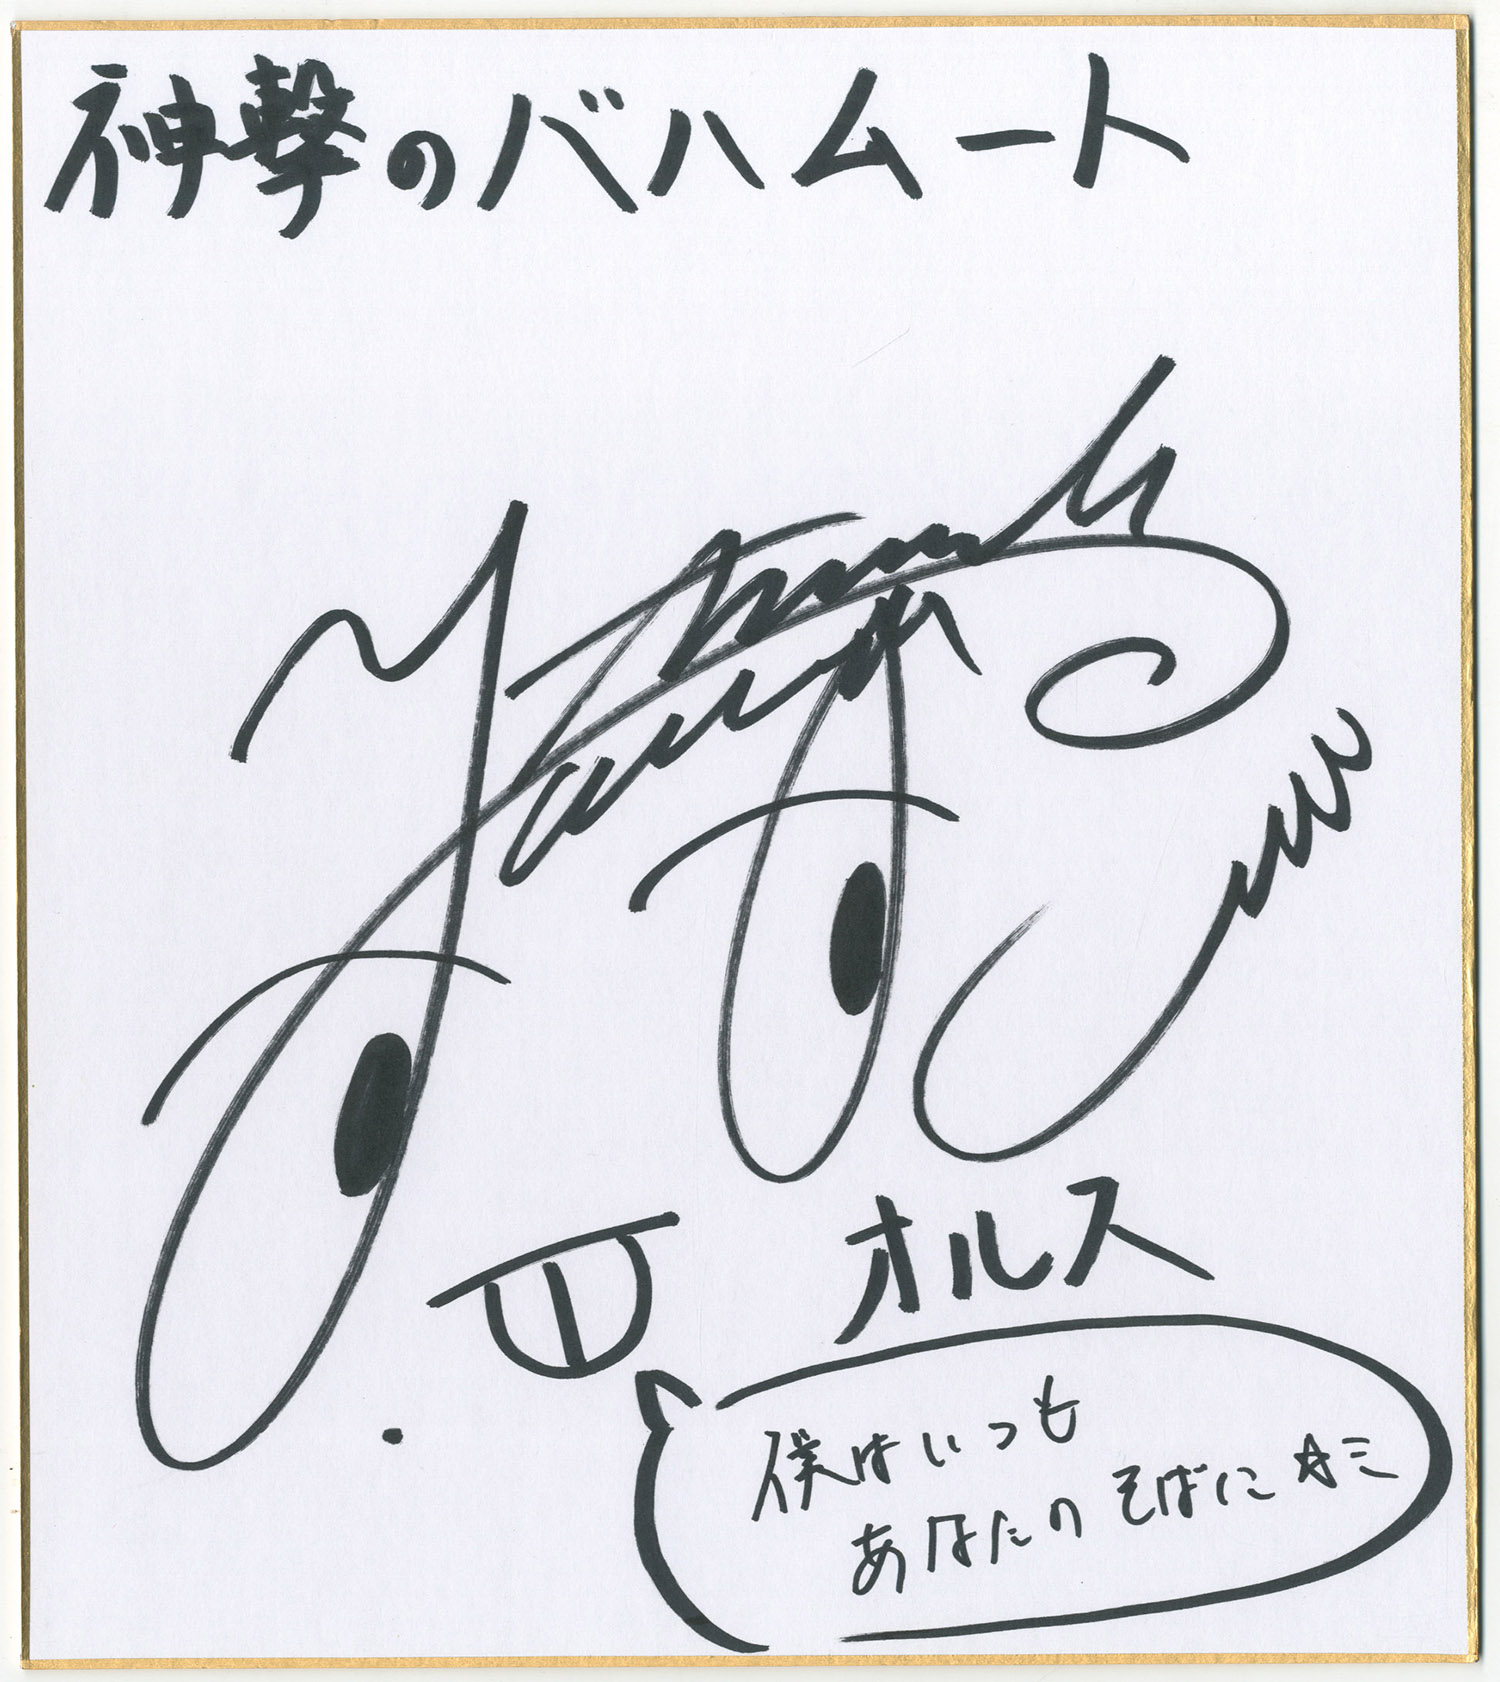 神撃のバハムート
オルス
僕はいつも
あなたのそばに☆ミ